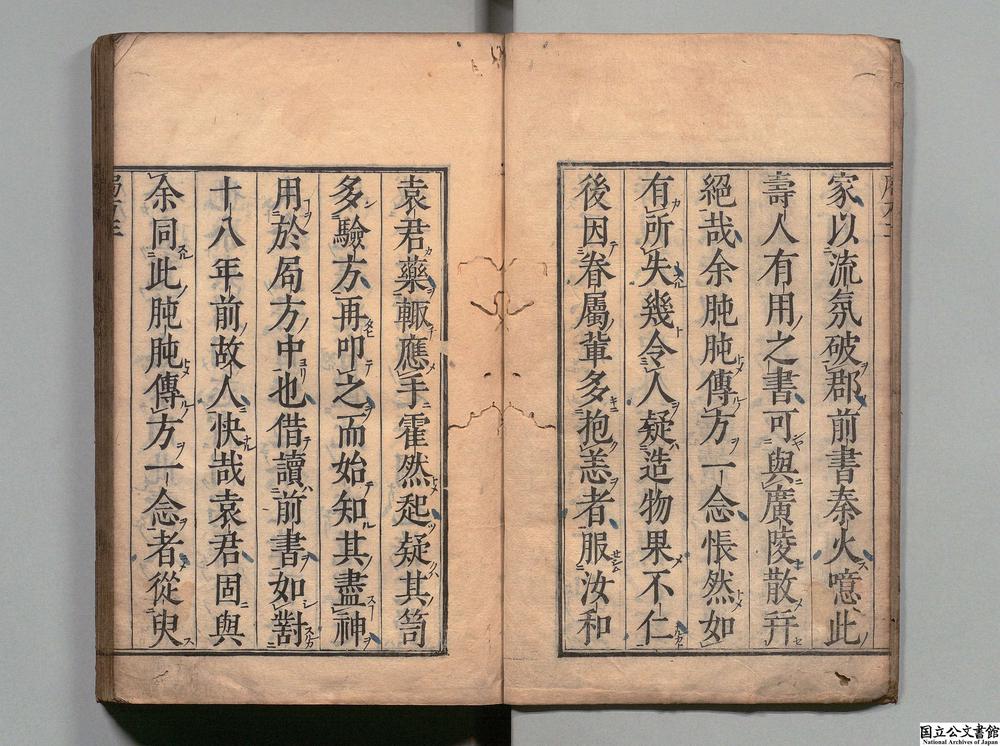 家以流氛破郡前書秦火噫此
壽人有用之書可與廣陵散并
絕哉余肫肫傳方一念悵然如
有所失幾令人疑造物果不仁
後因眷屬輩多抱恙者服汝和
袁君藥輙應手霍然起疑其笥
多驗方再叩之而始知其盡神
用於局方中也借讀前書如對
十八年前故人快哉袁君固與
余同此肫肫傳方一念者從臾
国立公文書館
National Archives of Japan